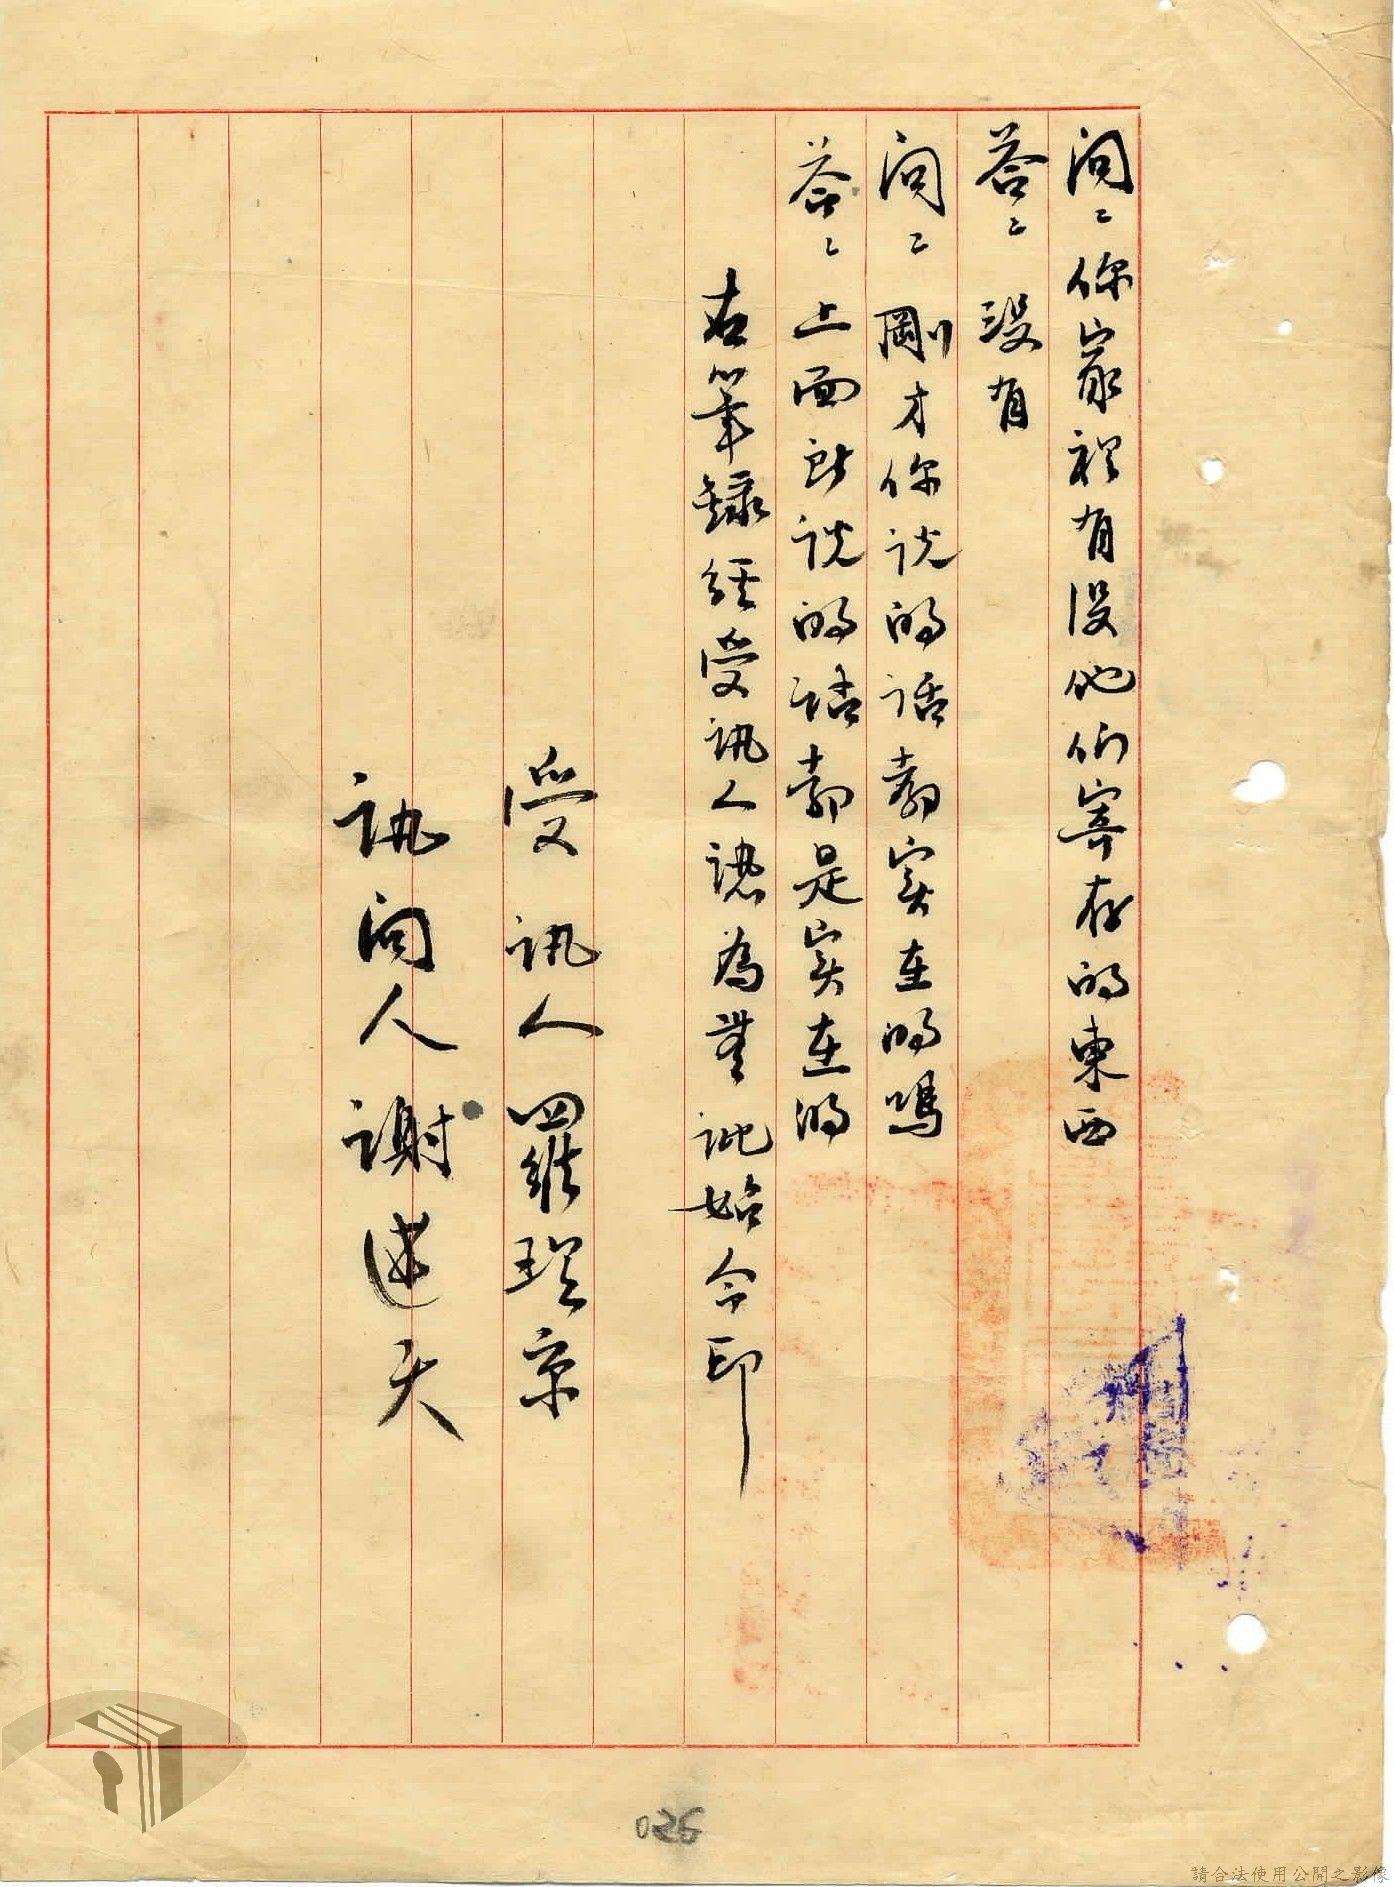 問:你家裡有沒他们寄存的東西
答:沒有
問:剛才你说的话都实在的嗎
答:上面所说的話都是实在的
右筆錄経受訊人認為無訛始令印
受訊人羅瑞京
訊問人謝述天
026
請合法使用公開之影像